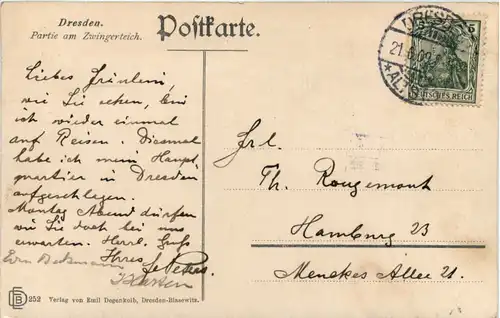 Dresden.
Partie am Zwingerteich.
Postkarte.
DRESDEN
21.
ALTST
5
DEUTSCHES REICH
Liebes Fräulein,
wie Sie sehen, bin
ich wieder einmal
auf Reisen. Diesmal
habe ich mein Haupt
quartier in Dresden
aufgeschlagen.
Montag Abend dürfen
wir Sie doch bei uns
erwarten. Herzl. Gruß
Ihres
Frl.
Th. Rougemont
Hamburg 23
Menckes Allee 21.
252 Verlag von Emil Degenkolb, Dresden-Blasewitz.